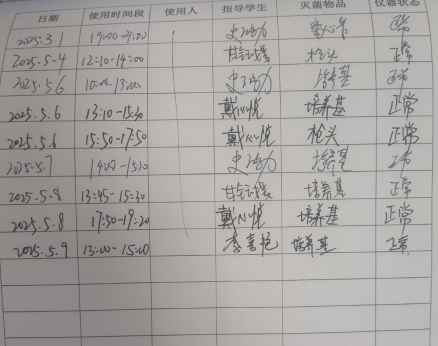 日期 使用时间段 使用人 指导学生 灭菌物品 仪器状态
2025.3.1 19:00-21:00 离心管 正常
2025.5-4 12:10-14:00 枪头 正常
2025.5.6 10:00-13:00 培养基 正常
2025.5.6 13:10-15:30 戴心悦 培养基 正常
2025.5.6 15:50-17:50 戴心悦 枪头 正常
2025.5.7 培养基 正常
2025.5.8 13:45-15:30 培养基 正常
2025.5.8 17:50-19:20 戴心悦 培养基 正常
2025.5.9 13:00-15:00 李喜悦 培养基 正常